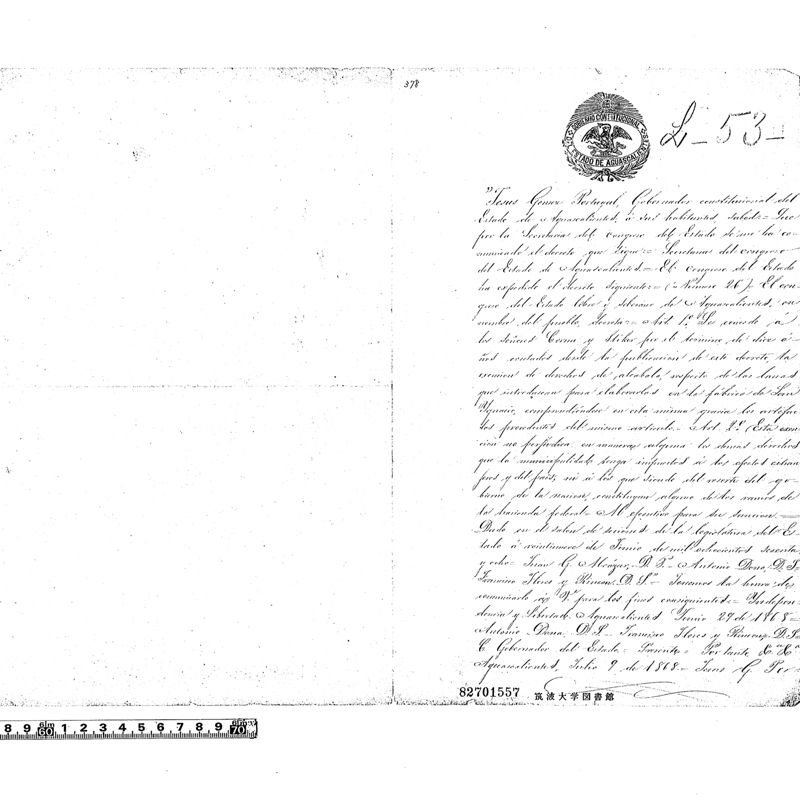 378
GOBIERNO CONSTITUCIONAL
ESTADO DE AGUASCALIENTES
L-53-
"Jesus Gomez Portugal, Gobernador constitucional del
Estado de Aguascalientes, á sus habitantes, sabed= Que
por la Secretaria del congreso del Estado se me ha co-
municado el decreto que sigue= Secretaria del congreso
del Estado de Aguascalientes= El congreso del Estado
ha expedido el decreto siguiente= (Número 26) El con-
greso del Estado libre y soberano de Aguascalientes, en
nombre del pueblo, decreta= Art. 1º Se concede á
los señores Cornu y Stiker por el termino de diez a-
ños contados desde la publicacion de este decreto, la
esencion de derechos de alcabala, respecto de las lanas
que introduzcan para elaborarlas en la fábrica de San
Ygnacio, comprendiendose en esta misma gracia los artefac-
tos procedentes del mismo articulo= Art. 2º Esta exen-
cion no perjudica en manera alguna los demas derechos
que la municipalidad tenga impuestos á los efectos estran-
jeros y del pais, ni á los que siendo del resorte del go-
bierno de la nacion, constituyan alguno de los ramos de
la hacienda federal= Al ejecutivo para su sancion.=
Dado en el salon de sesiones de la legislatura del Es-
tado á veintinueve de Junio de mil ochocientos sesenta
y ocho= Juan G. Alcázar, D. P.= Antonio Dona, D. S.
Francisco Flores y Rincon, D. S.= Tenemos la honra de
comunicarlo á V. para los fines consiguientes= Yndepen-
dencia y Libertad. Aguascalientes Junio 29 de 1868=
Antonio Dona, D. S.= Francisco Flores y Rincon, D. S.
C. Gobernador del Estado= Presente= Por tanto, &ª &ª
Aguascalientes, Julio 9 de 1868= Jesus G. Por-
82701557 筑波大学図書館
8 9 60 1 2 3 4 5 6 7 8 9 70